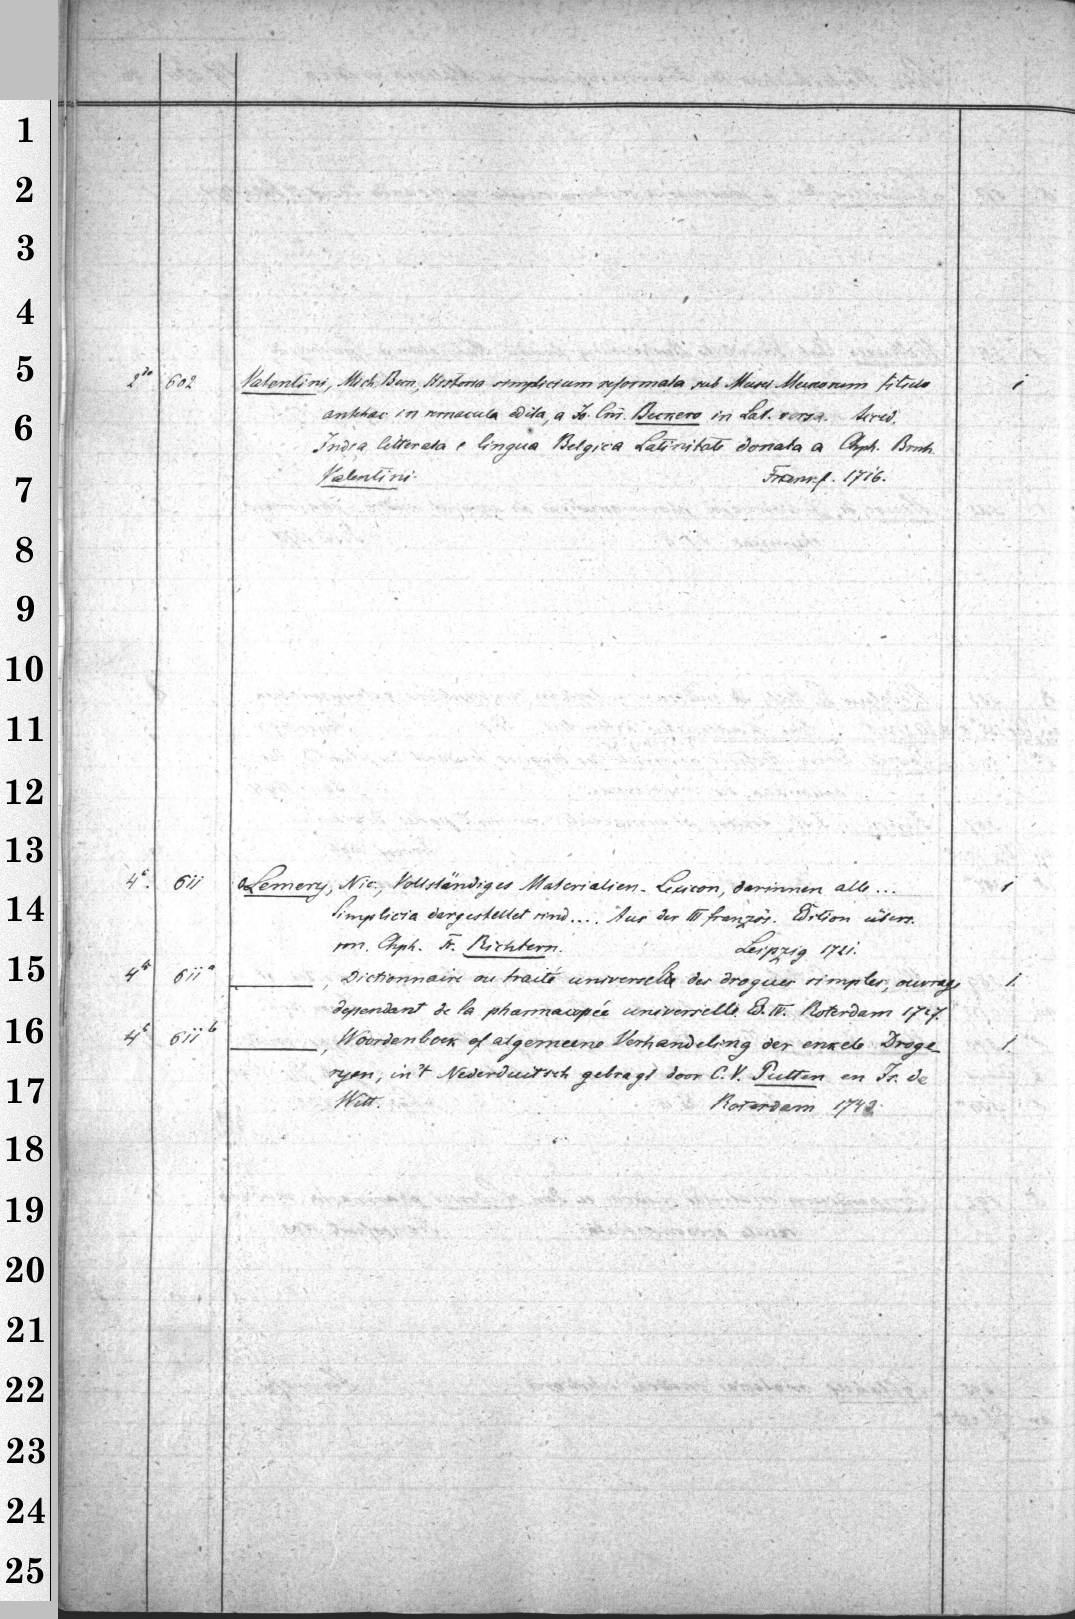 2do 602 Valentini, Mich. Bern., Historia simplicium reformata sub Musei Museorum titulo 1
anthac in vernacula edita, a Jo. Cnr. Beckero in Lat. versa. Acced.
India litterata e lingua Belgica Latinitate donata a Chph. Brnh.
Valentini. Francf. 1716.
4t. 611 Lemery, Nic., Vollständiges Materialien-Lexicon, darinnen alle ... 1
Simplicia dargestellet sind .... Aus der III französ. Edition übers.
von. Chph. Fr. Richtern. Leipzig 1721.
4to 611a ———, Dictionnaire ou traité universelle des drogues simples, ouvrage 1.
dependant de la pharmacopée universelle. Ed. IV. Roterdam 1727.
4t 611b ———, Woordenboek of algemeene Verhandeling der enkele Droge- 1.
ryen, in't Nederduitsch gebragt door C. V. Putten en Is. de
Witt. Roterdam 1743.